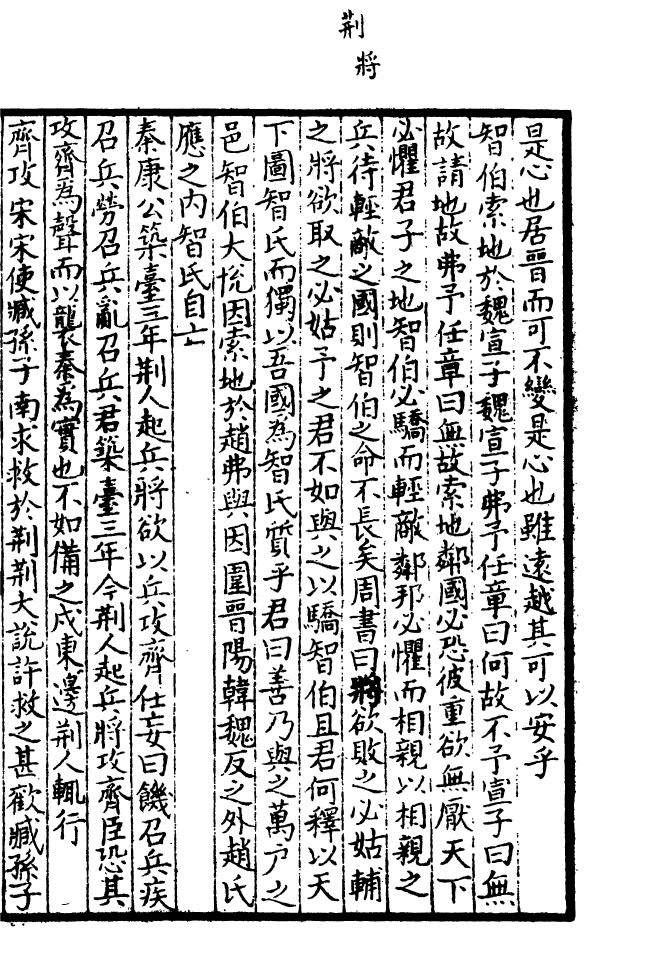 荆
將
是心也居晉而可不變是心也雖遠越其可以安乎
智伯索地於魏宣子魏宣子弗予任章曰何故不予宣子曰無
故請地故弗予任章曰無故索地鄰國必恐彼重欲無厭天下
必懼君子之地智伯必驕而輕敵鄰邦必懼而相親以相親之
兵待輕敵之國則智伯之命不長矣周書曰將欲敗之必姑輔
之將欲取之必姑予之君不如與之以驕智伯且君何釋以天
下圖智氏而獨以吾國為智氏質乎君曰善乃與之萬户之
邑智伯大恱因索地於趙弗與因圍晉陽韓魏反之外趙氏
應之内智氏自亡
秦康公築臺三年荆人起兵將欲以兵攻齊任妄曰饑召兵疾
召兵勞召兵亂召兵君築臺三年今荆人起兵將攻齊臣恐其
攻齊為聲而以襲秦為實也不如備之戍東邊荆人輒行
齊攻宋宋使臧孫子南求救於荆荆大說許救之甚歡臧孫子